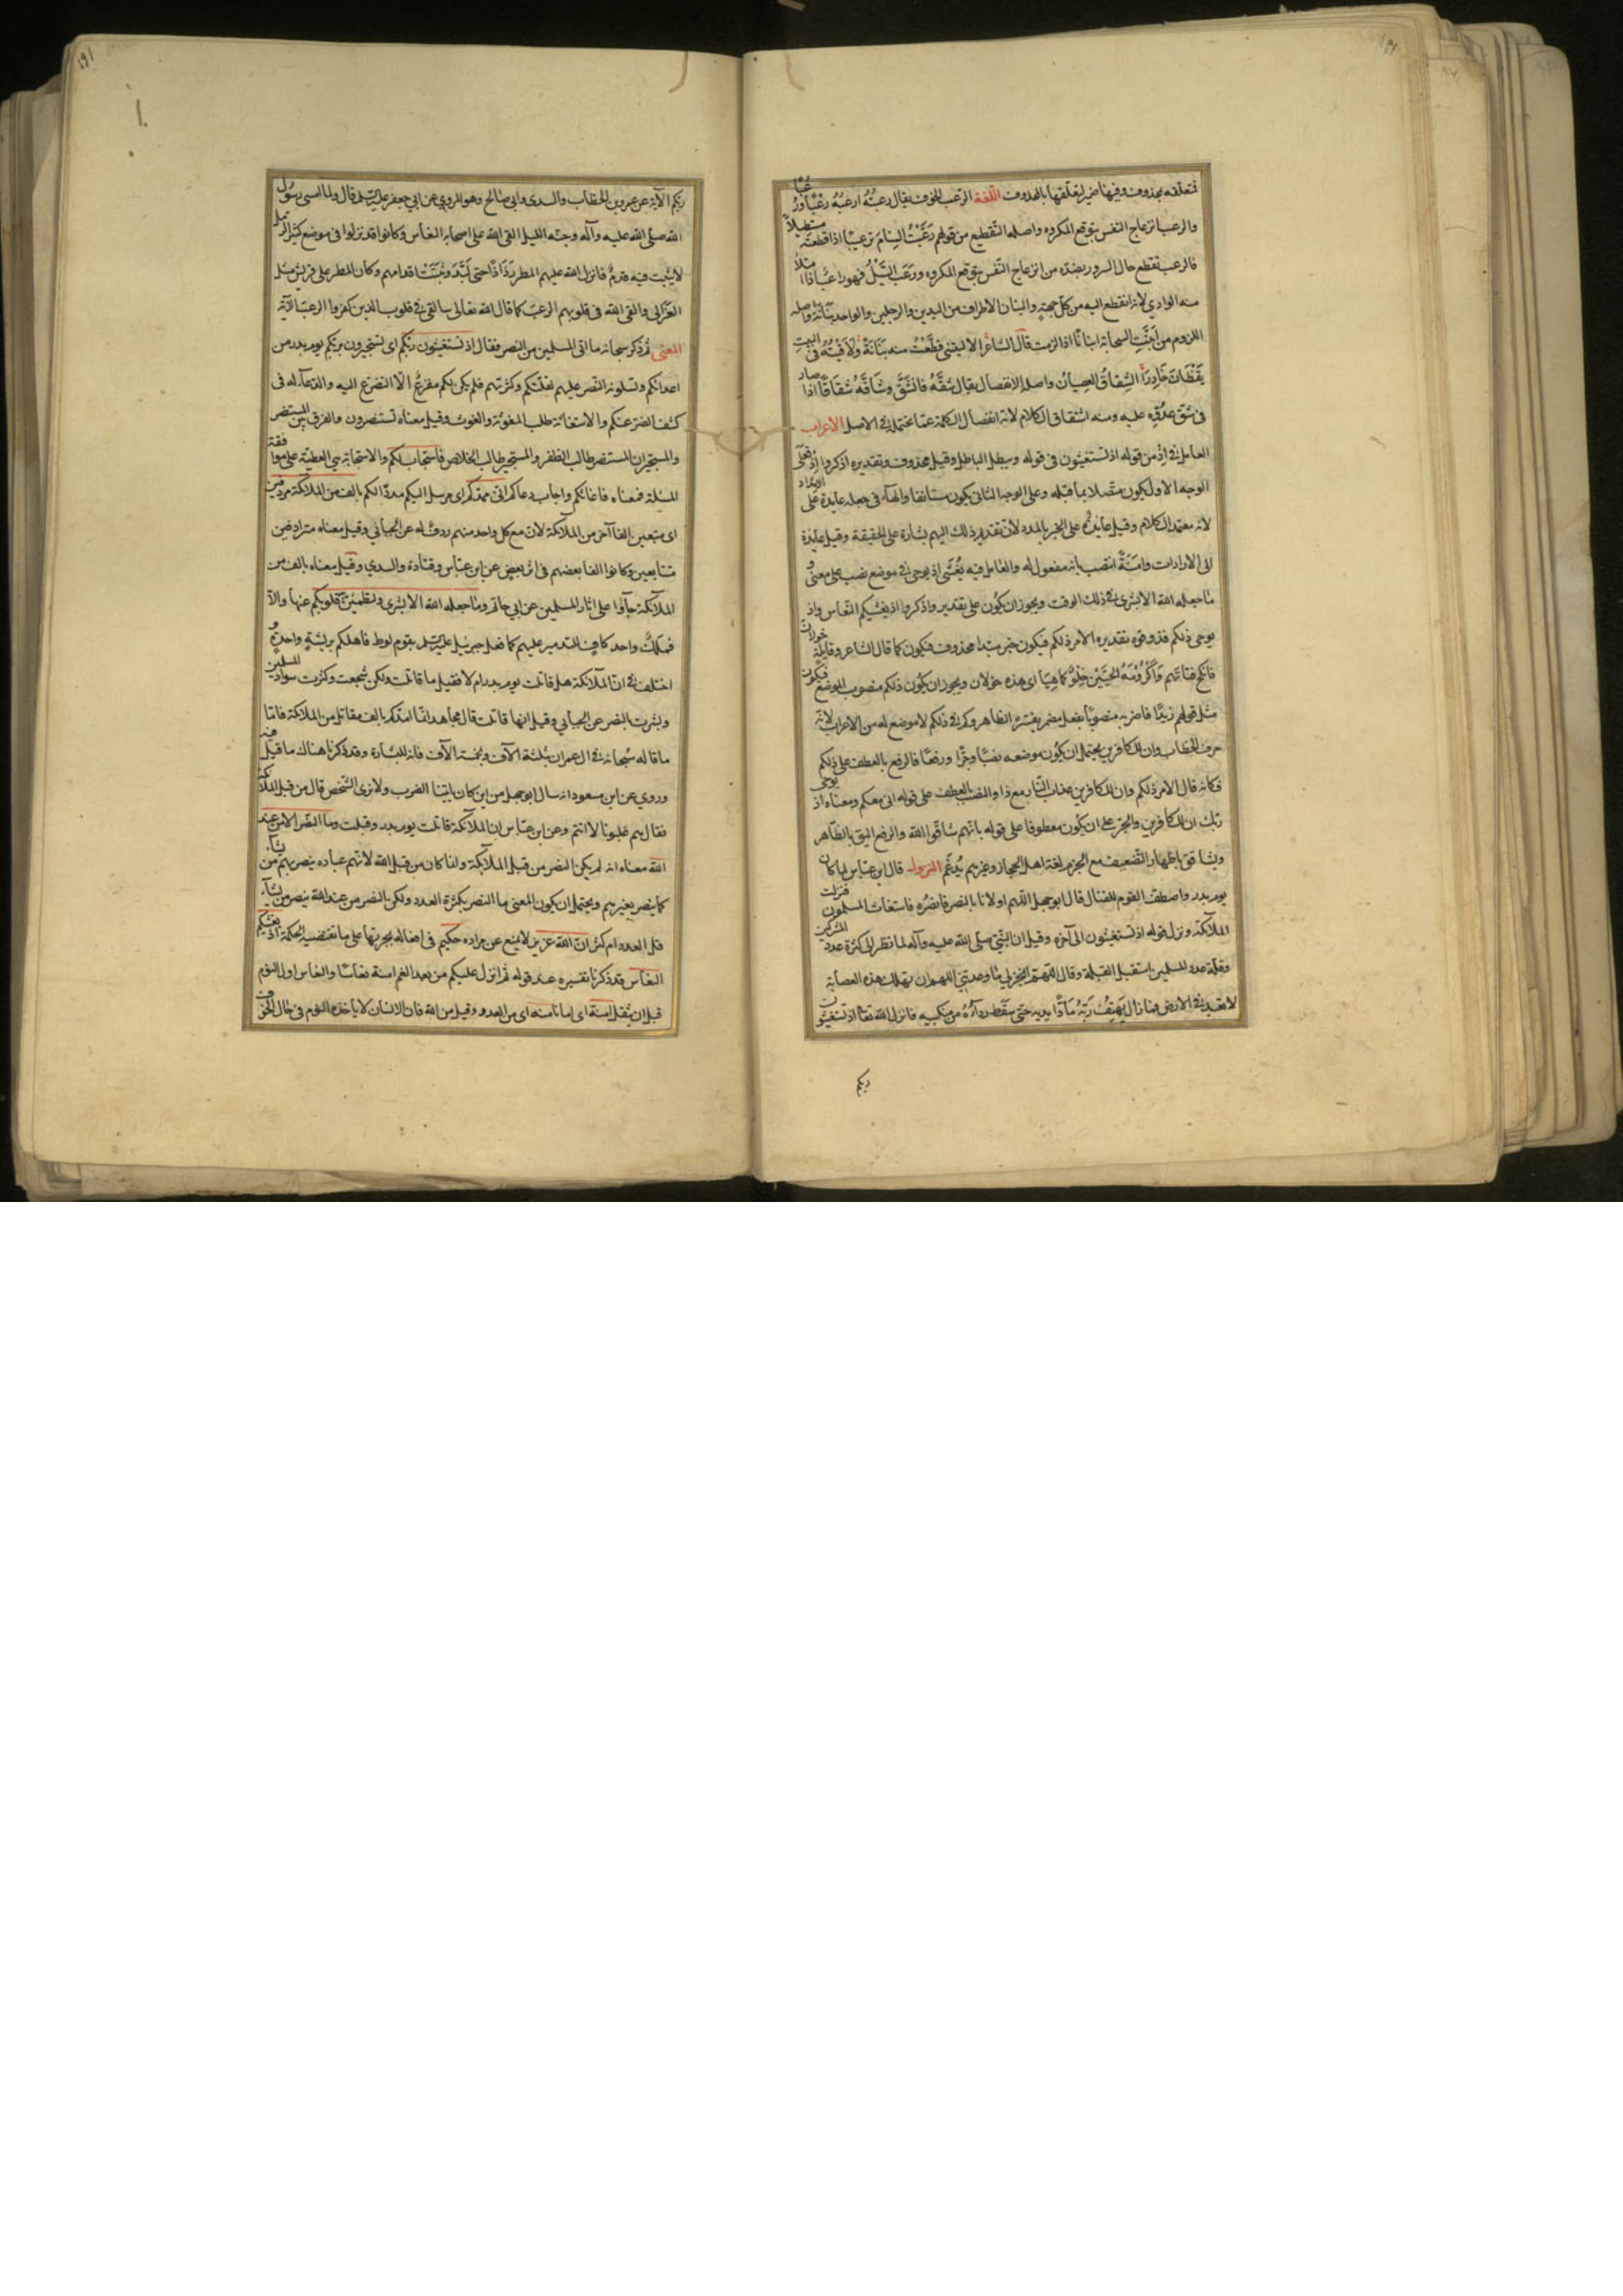 فتعلقه بمحذوف وفيها ضمير لتعلقها بالمحذوف اللغة الرعب الخوف يقال رعبته ارعبه رعبًا ورُعبًا
والرعب انزعاج النفس بتوقع المكروه واصله التقطيع من قولهم رَعَّبْتُ السنامَ ترعيبًا اذا قطعته مستطيلاً
فالرعب تقطع حال السرور بضده من انزعاج النفس بتوقع المكروه ورَعَبَ السَّيْلُ فهو راعب اذا امتلأ
منه الوادي لانه انقطع اليه من كل جهة والبنان الاطراف من اليدين والرجلين والواحد بنانة واصله
اللزوم من اَبَنَّتِ السحابة ابنانًا اذا لزمت قال الشاعر الا ليتني قطَّعْتُ منه بَنَانَةً ولاقَيْتُهُ فى البيت
يَقْظَانَ خَادِرَاً الشِّقاقُ العصيان واصله الانفصال يقال شقَّهُ فانشَقَّ وشَاقَّهُ شِقَاقًا اذا صار
فى شق عدوّه عليه ومنه اشتقاق الكلام لانه انفصال الكلمة عما تحتمله فى الاصل الاعراب
العامل فى اذ من قوله اذ تستغيثون فى قوله ويبطل الباطل وقيل محذوف وتقديره اذكروا اذ فعلى
الوجه الاول يكون متصلا بما قبله وعلى الوجه الثانى يكون مستانفا والهاء فى جعله عايدة على الامداد
لانه معتمد الكلام وقيل عايدة على الخبر بالمدد لان تقديم ذلك اليهم بشارة على الحقيقة وقيل عايدة
الى الارادات وامَنَةً انتصب بانه مفعول له والعامل فيه يُغَشّى اذ يوحى فى موضع نصب على معنى و
ما جعله الله الا بشرى فى ذلك الوقت ويجوز ان يكون على تقدير واذكروا اذ يغشيكم النعاس واذ
يوحى ذلكم فذوقوه تقديره الامر ذلكم فيكون خبر مبتدا محذوف فيكون كما قال الشاعر وقايلة خولان
فانكح فتاتهم وَاكْرُوْمَةُ الحَيَّيْنِ خِلْوٌ كما هيا اى هذه خولان ويجوز ان يكون ذلكم منصوب الموضع فيكون
مثل قولهم زيدًا فاضربه منصوبًا بفعل مضمر يفسّره الظاهر وكم فى ذلكم لا موضع له من الاعراب لانه
حرف الخطاب وان للكافرين يحتمل ان يكون موضعه نصبًا وجرًا ورفعًا فالرفع بالعطف على ذلكم
فكانه قال الامر ذلكم وان للكافرين عذاب النار مع ذا والنصب بالعطف على قوله انى معكم ومعناه اذ يوحى
ربك ان للكافرين والجر على ان يكون معطوفا على قوله بانهم شاقوا الله والرفع اليق بالظاهر
ويشاقق باظهار التضعيف مع الجزم لغة اهل الحجاز وغيرهم يُدغم النزول قال ابن عباس لما كان
يوم بدر واصطف القوم للقتال قال ابو جهل اللهم اولانا بالنصر فانصُره فاستغاث المسلمون فنزلت
الملآئكة ونزل قوله اذ تستغيثون الى آخره وقيل ان النبي صلى الله عليه وآله لما نظر الى كثرة عدد المشركين
وقلة عدد المسلمين استقبل القبلة وقال اللهم انجز لي ما وعدتني اللهم ان تهلك هذه العصابة
لا تعبد فى الارض فما زال يهتِفُ ربَّه مَادًّا يديه حتى سقط رداؤه من منكبيه فانزل الله تعا اذ تستغيثون
ربكم
ربكم الآية عن عمر بن الخطاب والسدي وابي صالح وهو المروي عن ابي جعفر عليه السلم قال ولما امسى رسول
الله صلى الله عليه وآله وجنّه الليل القى الله على اصحابه النعاس وكانوا قد نزلوا فى موضع كثير الرمل
لا يثبت فيه قدمٌ فانزل الله عليهم المطر رَذَاذًا حتى لَبَّدَ وثَبَتَت اقدامهم وكان المطر على قريش مثل
العَزَالي والقى الله فى قلوبهم الرعب كما قال الله تعالى سالقى فى قلوب الذين كفروا الرعب الآية
المعنى ثم ذكر سبحانه ما اتى المسلمين من النصر فقال اذ تستغيثون ربكم اى تستجيرون بربكم يوم بدر من
اعدائكم وتسلونه النصر عليهم لقلتكم وكثرتهم فلم يكن لكم مفزعٌ الّا التضرع اليه والدعآء له فى
كشف الضر عنكم والاستغاثة طلب المغوثة والغوث وقيل معناه تستنصرون والفرق بين المستنصر
والمستجير ان المستنصر طالب الظفر والمستجير طالب الخلاص فاستجاب لكم والاستجابة هي العطية على موافقة
المسئلة فمعناه فاغاثكم واجاب دعاكم انى ممدكم اى مرسل اليكم مددًا لكم بالف من الملائكة مردفين
اى متبعين الفا آخر من الملائكة لان مع كل واحد منهم ردفٌ له عن الجبائي وقيل معناه مترادفين
متتابعين وكانوا الفا بعضهم فى اثر بعض عن ابن عباس وقتادة والسدي وقيل معناه بالف من
الملآئكة جآؤا على اثار المسلمين عن ابي حاتم وما جعله الله الا بشرى ولتطمئن به قلوبكم عنها والا
فملكٌ واحد كافٍ للتدمير عليهم كما فعل جبرئيل عليه السلم بقوم لوط فاهلكهم بريشةٍ واحدةٍ و
اختلف فى ان الملآئكة هل قاتلت يوم بدر ام لا فقيل ما قاتلت ولكن شجعت وكثرت سواد المسلمين
وبشرت بالنصر عن الجبآئي وقيل انها قاتلت قال مجاهد انما امدّكم بالف مقاتل من الملائكة فاما
ما قاله سُبحانه فى ال عمران بثلثة الآف وبخمسة الآف فانه للبشارة وقد ذكرنا هناك ما قيل فيه
وروي عن ابن مسعود انه سال ابو جهل من اين كان ياتينا الضرب ولا نرى الشخص قال من قبل الملائكة
فقال هم غلبونا لا انتم وعن ابن عباس ان الملآئكة قاتلت يوم بدر وقتلت وما النصر الا من عند
الله معناه انه لم يكن النصر من قبل الملآئكة وانما كان من قبل الله لانهم عباده ينصر بهم من يشآء
كما ينصر بغيرهم ويحتمل ان يكون المعنى ما النصر بكثرة العدد ولكن النصر من عند الله ينصر من يشآء
قل العدد ام كثر ان الله عزيز لا يمنع عن مراده حكيم فى افعاله يجريها على ما تقتضيه الحكمة اذ يغشيكم
النعاس قد ذكرنا تفسيره عند قوله ثم انزل عليكم من بعد الغم امنة نعاسًا والنعاس اول النوم
قبل ان يثقل امنة اى امانا منه اى من العدو وقيل من الله فان الانسان لا يأخذه النوم فى حال الخوف